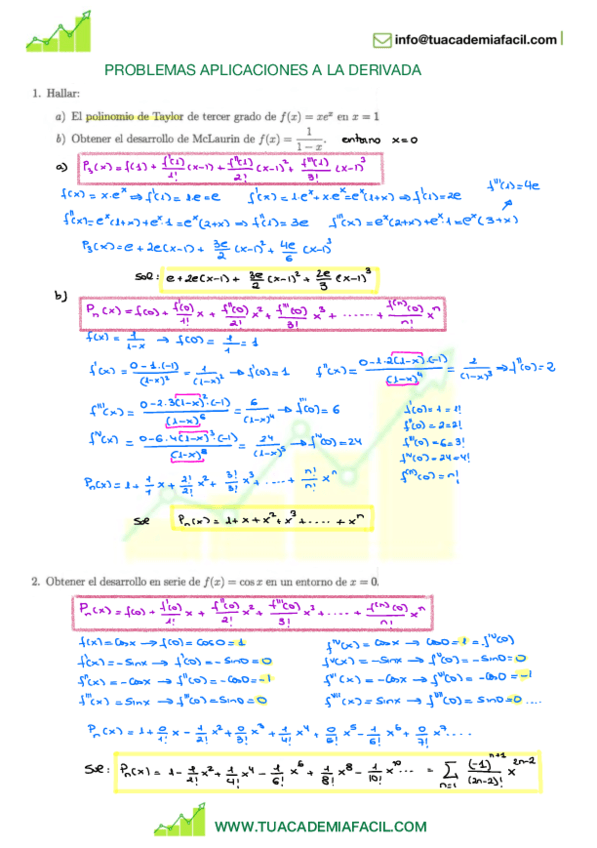 info@tuacademiafacil.com
PROBLEMAS APLICACIONES A LA DERIVADA
1. Hallar:
a) El polinomio de Taylor de tercer grado de f(x) = xeˣ en x = 1
b) Obtener el desarrollo de McLaurin de f(x) = 1/(1−x). entorno x=0
a) P₃(x) = f(1) + f'(1)/1! (x-1) + f''(1)/2! (x-1)² + f'''(1)/3! (x-1)³
f(x) = x·eˣ ⇒ f(1) = 1·e = e f'(x) = 1·eˣ + x·eˣ = eˣ(1+x) ⇒ f'(1) = 2e f'''(1) = 4e
f''(x) = eˣ(1+x) + eˣ·1 = eˣ(2+x) ⇒ f''(1) = 3e f'''(x) = eˣ(2+x) + eˣ·1 = eˣ(3+x)
P₃(x) = e + 2e(x-1) + 3e/2 (x-1)² + 4e/6 (x-1)³
Sol: e + 2e(x-1) + 3e/2 (x-1)² + 2e/3 (x-1)³
b) Pₙ(x) = f(0) + f'(0)/1! x + f''(0)/2! x² + f'''(0)/3! x³ + ...... + f⁽ⁿ⁾(0)/n! xⁿ
f(x) = 1/(1-x) → f(0) = 1/1 = 1
f'(x) = (0-1·(-1))/(1-x)² = 1/(1-x)² → f'(0) = 1 f''(x) = (0-1·2(1-x)·(-1))/(1-x)⁴ = 2/(1-x)³ → f''(0) = 2
f'''(x) = (0-2·3(1-x)²·(-1))/(1-x)⁶ = 6/(1-x)⁴ → f'''(0) = 6
f'(0) = 1 = 1!
f''(0) = 2 = 2!
f'''(0) = 6 = 3!
f^IV(0) = 24 = 4!
f⁽ⁿ⁾(0) = n!
f^IV(x) = (0-6·4(1-x)³·(-1))/(1-x)⁸ = 24/(1-x)⁵ → f^IV(0) = 24
Pₙ(x) = 1 + 1/1 x + 2!/2! x² + 3!/3! x³ + .... + n!/n! xⁿ
Sol Pₙ(x) = 1 + x + x² + x³ + .... + xⁿ
2. Obtener el desarrollo en serie de f(x) = cos x en un entorno de x = 0.
Pₙ(x) = f(0) + f'(0)/1! x + f''(0)/2! x² + f'''(0)/3! x³ + .... + f⁽ⁿ⁾(0)/n! xⁿ
f(x) = Cosx → f(0) = COS0 = 1 f^IV(x) = Cosx → Cos0 = 1 = f^IV(0)
f'(x) = -Sinx → f'(0) = -Sin0 = 0 f^V(x) = -Sinx → f^V(0) = -Sin0 = 0
f''(x) = -Cosx → f''(0) = -Cos0 = -1 f^VI(x) = -Cosx → f^VI(0) = -Cos0 = -1
f'''(x) = Sinx → f'''(0) = Sin0 = 0 f^VII(x) = Sinx → f^VII(0) = Sin0 = 0 ....
Pₙ(x) = 1 + 0/1! x - 1/2! x² + 0/3! x³ + 1/4! x⁴ + 0/5! x⁵ - 1/6! x⁶ + 0/7! x⁷ ....
Sol: Pₙ(x) = 1 - 1/2! x² + 1/4! x⁴ - 1/6! x⁶ + 1/8! x⁸ - 1/10! x¹⁰ ... = ∑ n=1 (-1)ⁿ⁺¹/(2n-2)! x²ⁿ⁻²
WWW.TUACADEMIAFACIL.COM